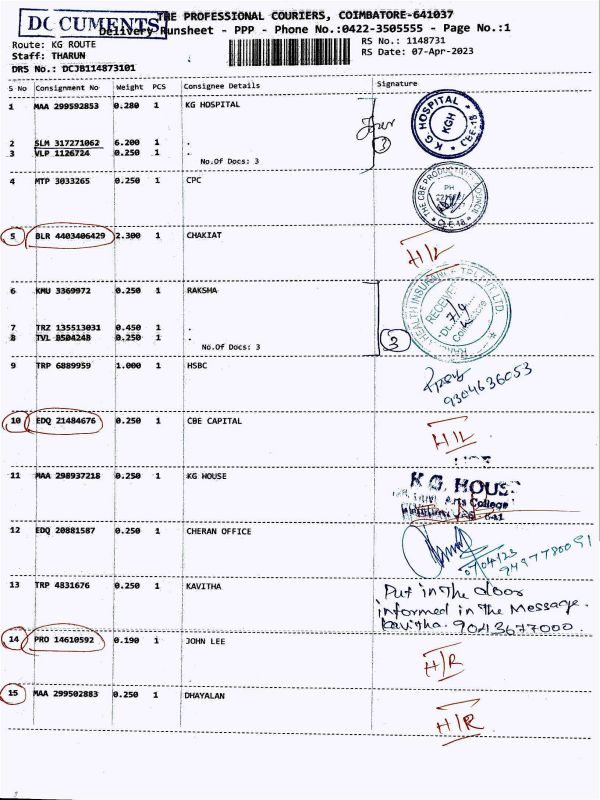 DOCUMENTS
THE PROFESSIONAL COURIERS, COIMBATORE-641037
Delivery Runsheet - PPP - Phone No.:0422-3505555 - Page No.:1
Route: KG ROUTE
RS No.: 1148731
Staff: THARUN
RS Date: 07-Apr-2023
DRS No.: DCJB114873101
S No Consignment No Weight PCS Consignee Details Signature
1 MAA 299592853 0.280 1 KG HOSPITAL
K G HOSPITAL
KGH
2 SLM 317271062 6.200 1 .
3 VLP 1126724 0.250 1 .
3
No.Of Docs: 3
4 MTP 3033265 0.250 1 CPC
THE CBE PRODUCTIVITY COUNCIL
PH
CBE-18
5 BLR 4403406429 2.300 1 CHAKIAT
H/L
6 KMU 3369972 0.250 1 RAKSHA
HEALTH INSURANCE TPA PVT.LTD.
RECEIVED
7/4
Coimbatore
7 TRZ 135513031 0.450 1 .
8 TVL 8504248 0.250 1 .
No.Of Docs: 3
3
9 TRP 6889959 1.000 1 HSBC
9304636053
10 EDQ 21484676 0.250 1 CBE CAPITAL
H/L
11 MAA 298937218 0.250 1 KG HOUSE
K G. HOUSE
Arts College
12 EDQ 20881587 0.250 1 CHERAN OFFICE
07/04/23
9497780091
13 TRP 4831676 0.250 1 KAVITHA
Put in the door
informed in the Message.
Kavitha. 9043677000.
14 PRO 14610592 0.190 1 JOHN LEE
H/R
15 MAA 299502883 0.250 1 DHAYALAN
H/R